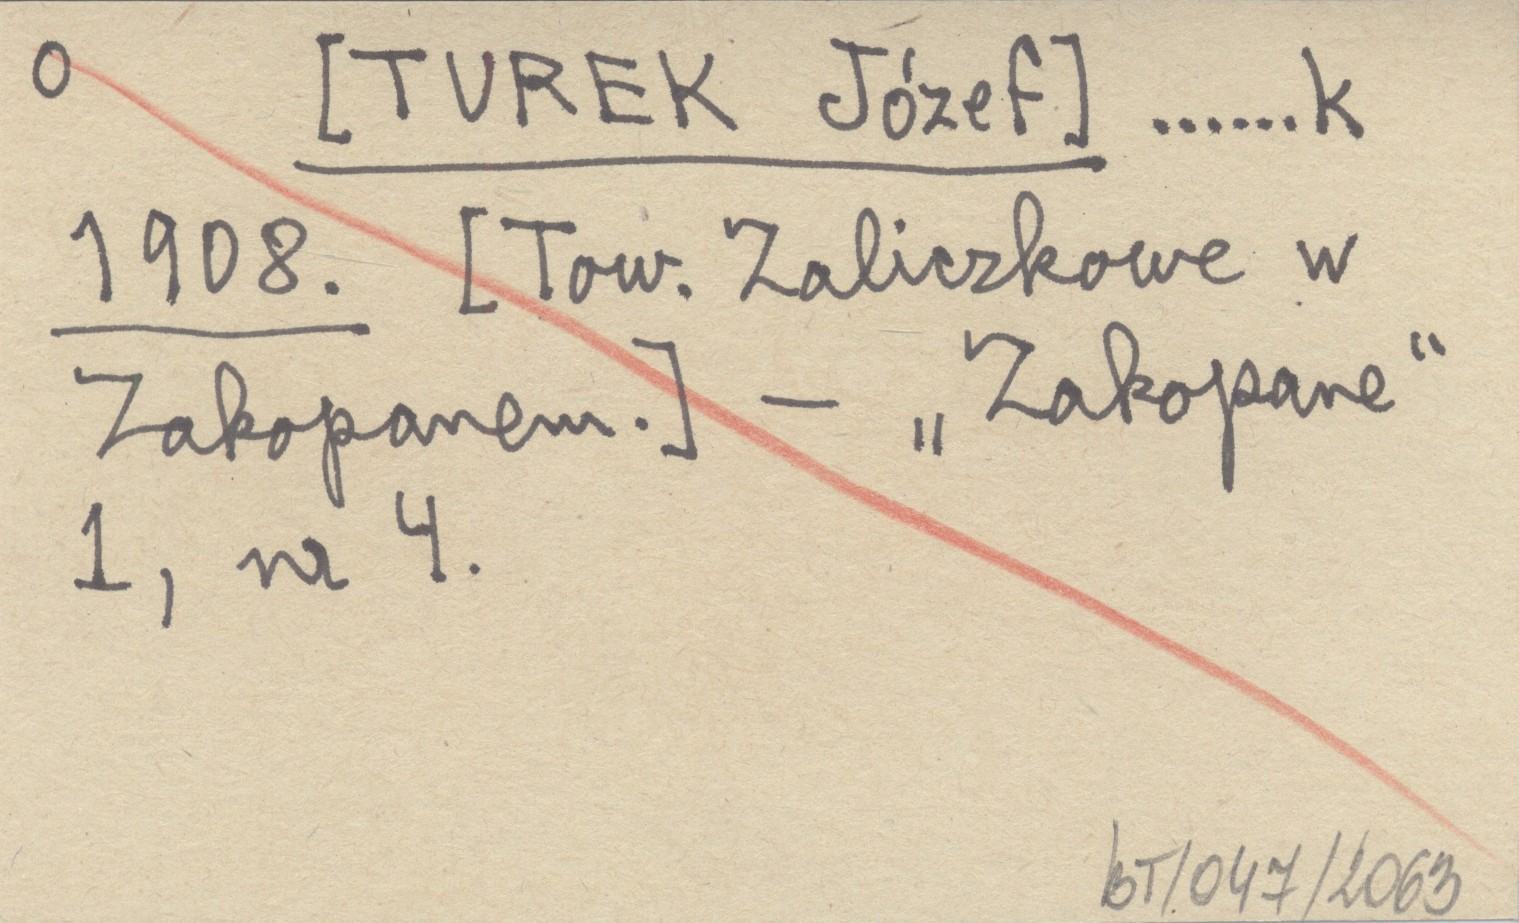 O [TUREK Józef] ......k
1908. [Tow. Zaliczkowe w
Zakopanem.] — „Zakopane“
1, nr 4.
BT/047/2063